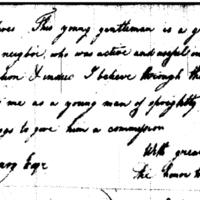 This young gentleman is a g
neighbor, who was active and useful in
I believe through th
me as a young man of sprightly
to give him a commission
With grea
Esqr
the honor t